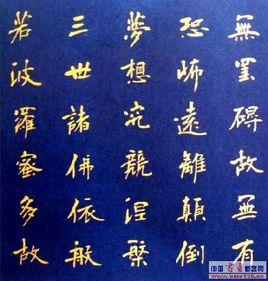 無罣碍故無有
恐怖遠離顛倒
夢想究競涅槃
三世諸佛依般
若波羅蜜多故
中国